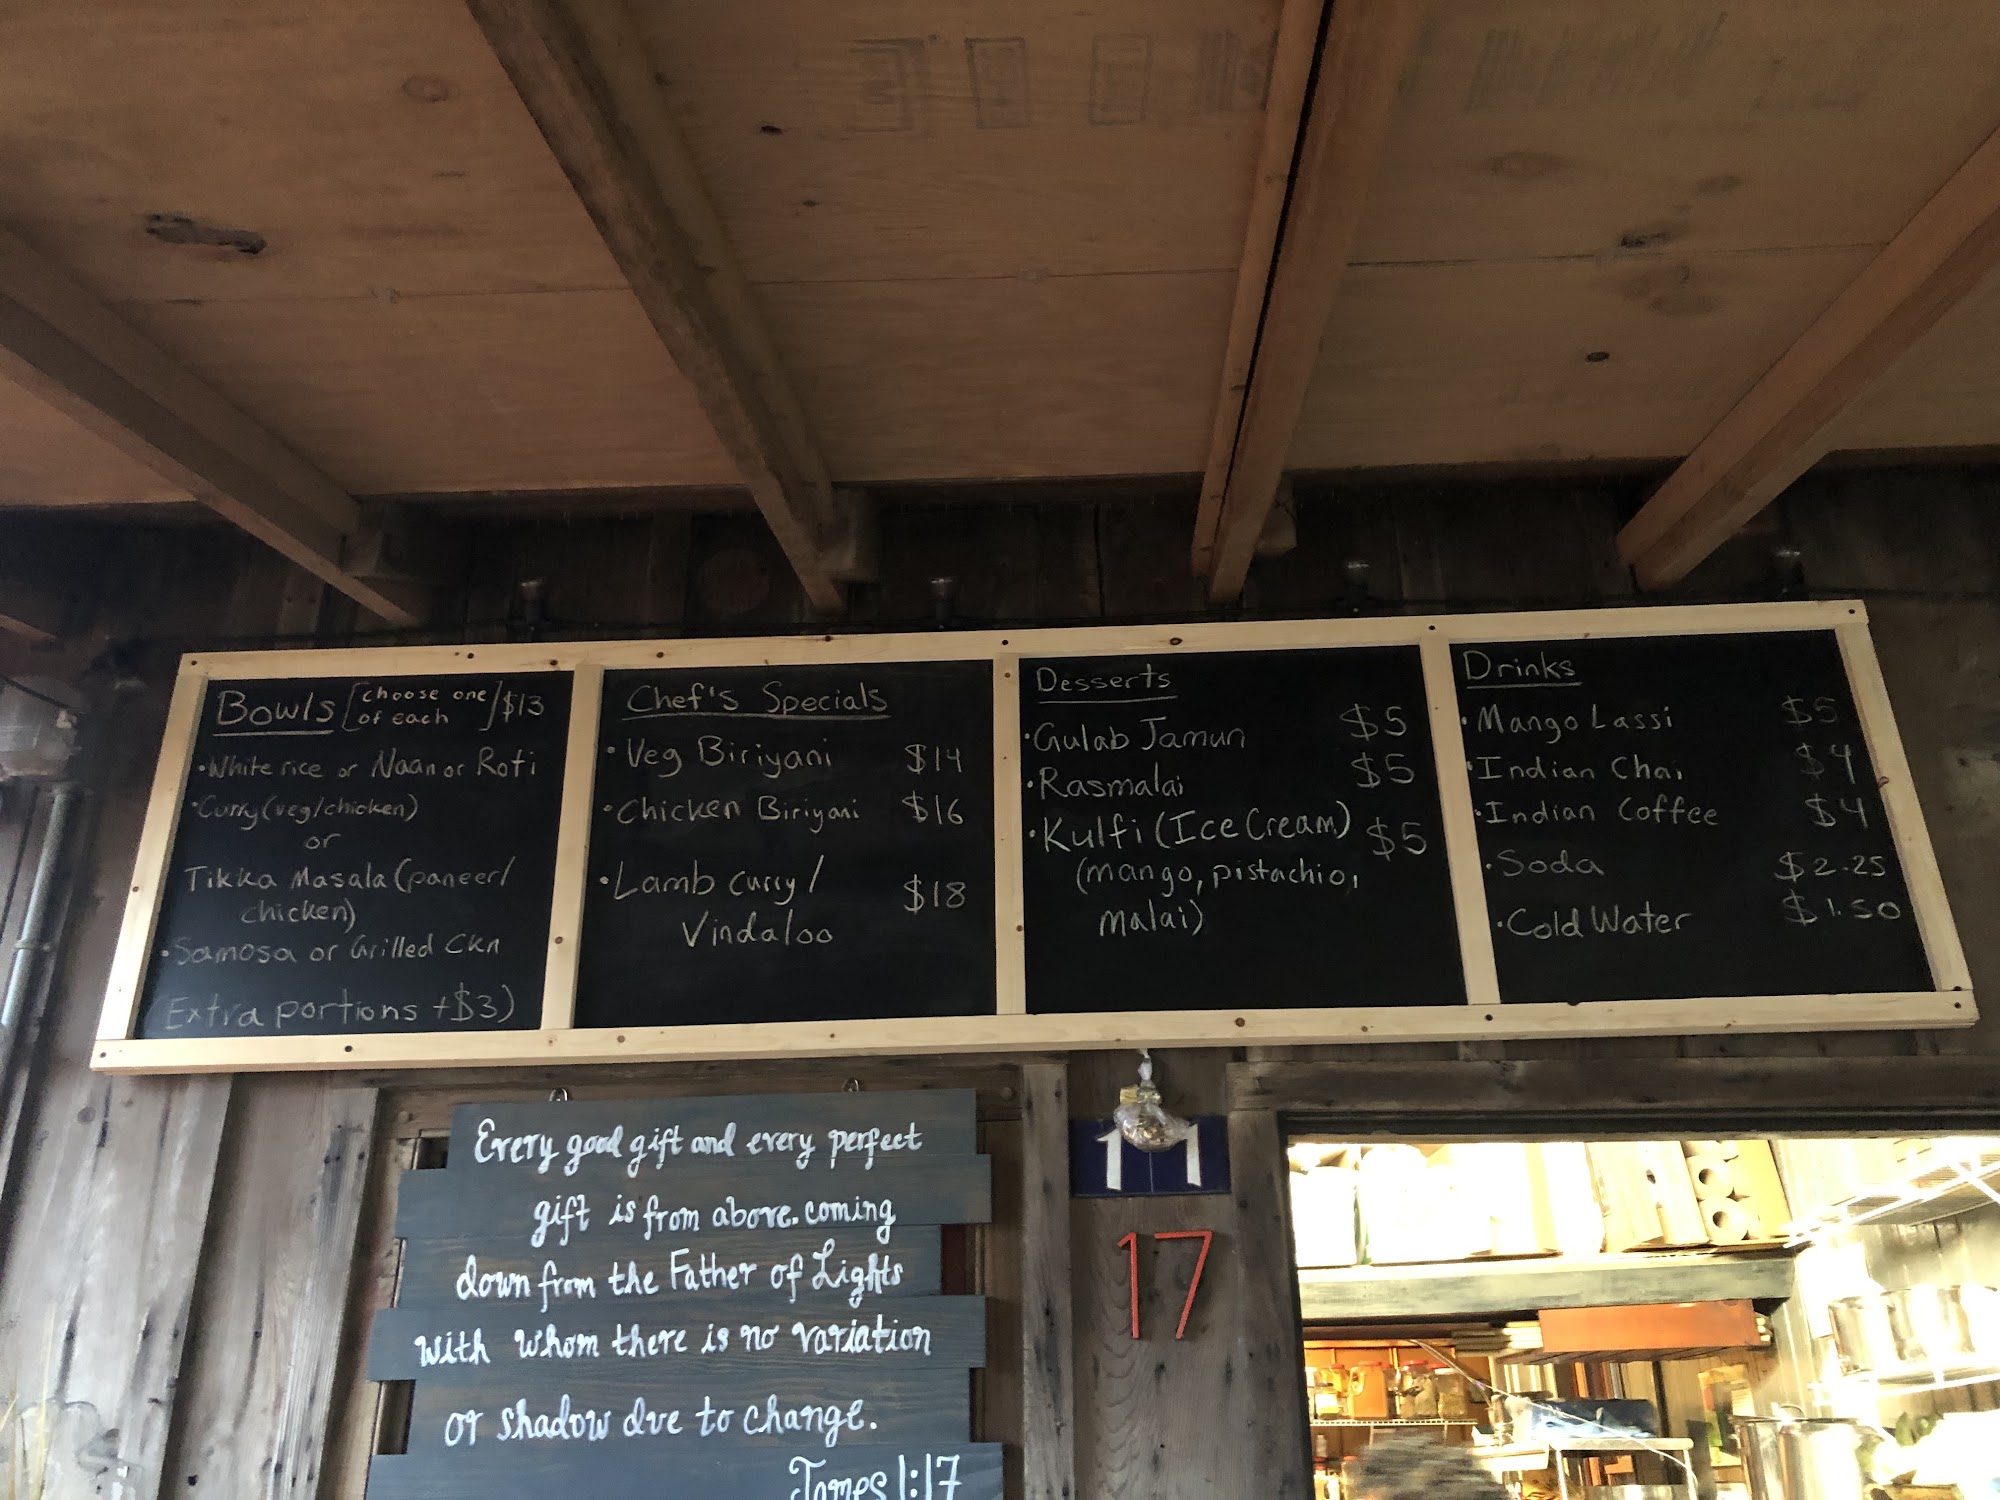 Bowls [choose one of each] $13
•White rice or Naan or Roti
•Curry (veg/chicken)
or
Tikka Masala (paneer/
chicken)
•Samosa or Grilled Ckn
(Extra portions +$3)
Chef's Specials
•Veg Biriyani $14
•Chicken Biriyani $16
•Lamb Curry/ $18
Vindaloo
Desserts
•Gulab Jamun $5
•Rasmalai $5
•Kulfi (Ice Cream) $5
(mango, pistachio,
Malai)
Drinks
•Mango Lassi $5
•Indian Chai $4
•Indian Coffee $4
•Soda $2.25
•Cold Water $1.50
Every good gift and every perfect
gift is from above. coming
down from the Father of Lights
with whom there is no variation
or shadow due to change.
James 1:17
17